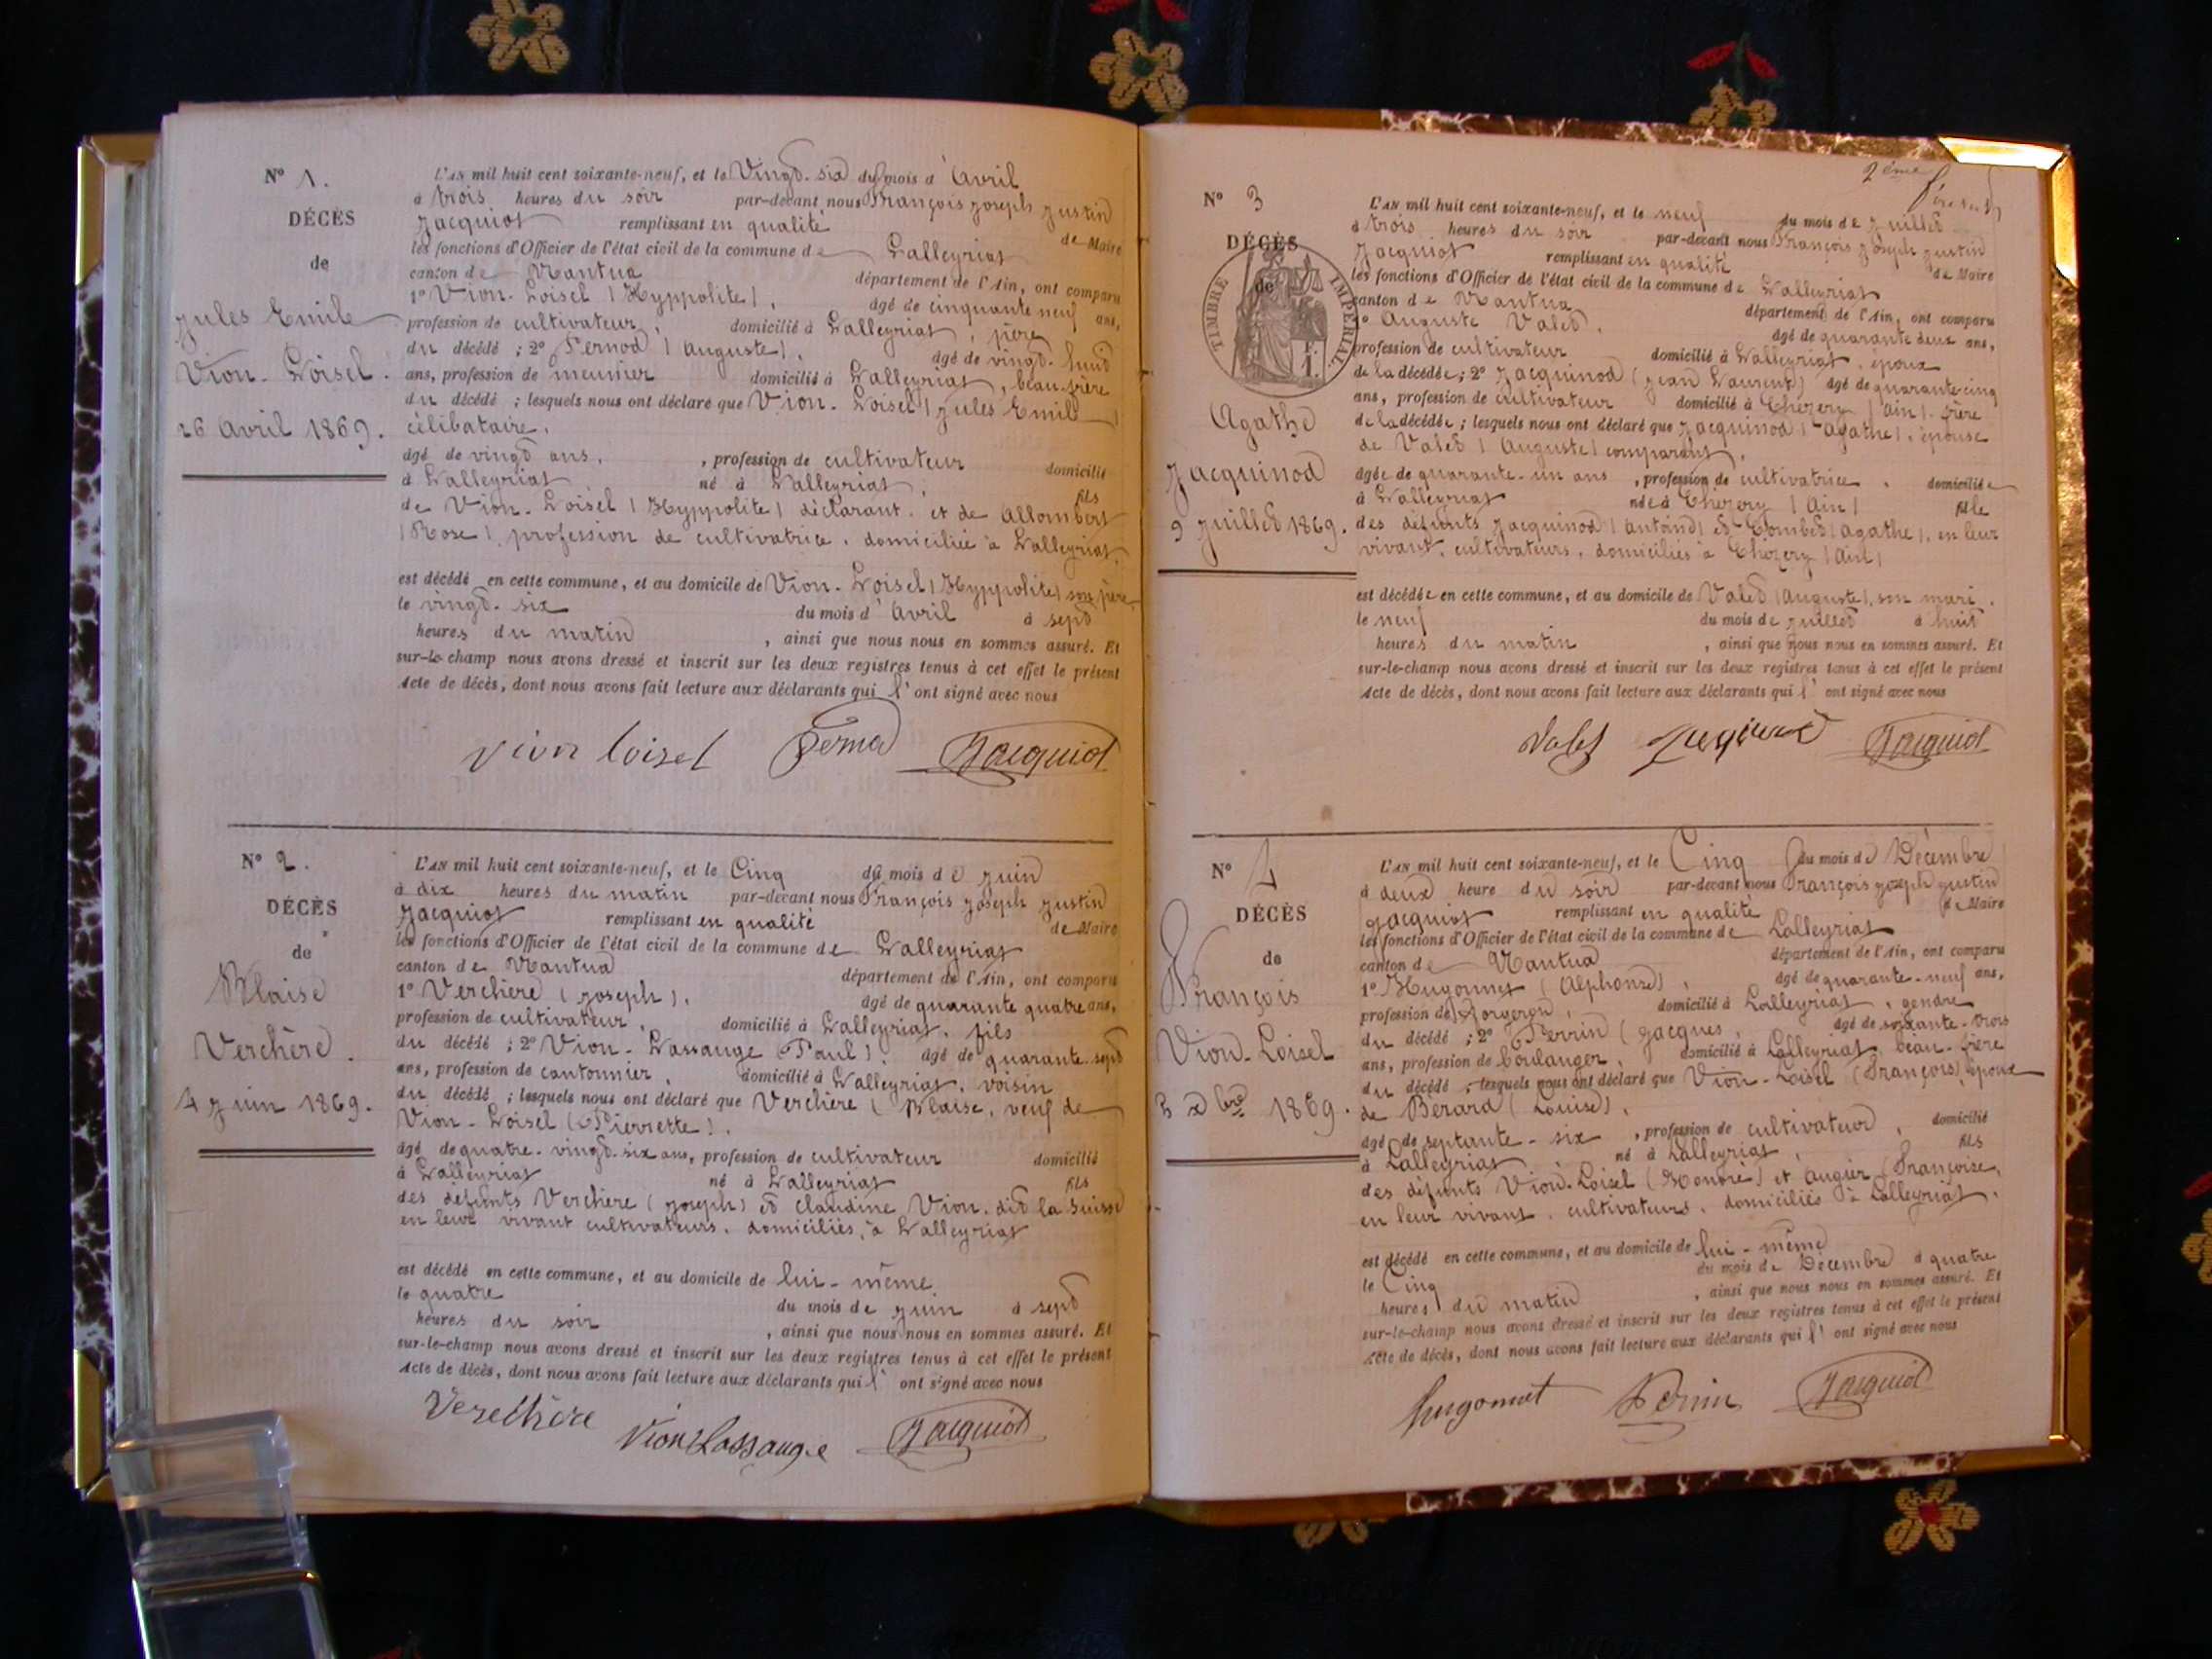 Nº 1.
DÉCÈS
de
Jules Emile
Vion-Loisel.
26 Avril 1869.
L'AN mil huit cent soixante-neuf, et le Vingt-six du mois d'Avril
à trois heures du soir par-devant nous François Joseph Justin
Jacquiot remplissant en qualité de Maire
les fonctions d'Officier de l'état civil de la commune de Lalleyriat
canton de Nantua département de l'Ain, ont comparu
1º Vion-Loisel (Hyppolite), âgé de cinquante neuf ans,
profession de cultivateur, domicilié à Lalleyriat, père
du décédé; 2º Pernod (Auguste), âgé de vingt-huit
ans, profession de meunier domicilié à Lalleyriat, beau-frère
du décédé; lesquels nous ont déclaré que Vion-Loisel (Jules Emile)
célibataire.
âgé de vingt ans, profession de cultivateur domicilié
à Lalleyriat né à Lalleyriat, fils
de Vion-Loisel (Hyppolite) déclarant et de Allombert
(Rose), profession de cultivatrice, domiciliée à Lalleyriat,
est décédé en cette commune, et au domicile de Vion-Loisel (Hyppolite) son père
le vingt-six du mois d'Avril à sept
heures du matin, ainsi que nous nous en sommes assuré. Et
sur-le-champ nous avons dressé et inscrit sur les deux registres tenus à cet effet le présent
Acte de décès, dont nous avons fait lecture aux déclarants qui l'ont signé avec nous
Vion Loisel Pernod Jacquiot
Nº 2.
DÉCÈS
de
Blaise
Verchère.
4 Juin 1869.
L'AN mil huit cent soixante-neuf, et le Cinq du mois de Juin
à dix heures du matin par-devant nous François Joseph Justin
Jacquiot remplissant en qualité de Maire
les fonctions d'Officier de l'état civil de la commune de Lalleyriat
canton de Nantua département de l'Ain, ont comparu
1º Verchère (Joseph), âgé de quarante quatre ans,
profession de cultivateur, domicilié à Lalleyriat, fils
du décédé; 2º Vion-Lassange Paul), âgé de quarante-sept
ans, profession de cantonnier, domicilié à Lalleyriat, voisin
du décédé; lesquels nous ont déclaré que Verchère (Blaise, veuf de
Vion-Loisel (Pierrette).
âgé de quatre-vingt-six ans, profession de cultivateur domicilié
à Lalleyriat né à Lalleyriat fils
des défunts Verchère (Joseph) et Claudine Vion, dit la Suisse
en leur vivant cultivateurs, domiciliés, à Lalleyriat
est décédé en cette commune, et au domicile de lui-même.
le quatre du mois de Juin à sept
heures du soir, ainsi que nous nous en sommes assuré. Et
sur-le-champ nous avons dressé et inscrit sur les deux registres tenus à cet effet le présent
Acte de décès, dont nous avons fait lecture aux déclarants qui l'ont signé avec nous
Verchère Vion Lassange Jacquiot
2ème
Nº 3
DÉCÈS
de
TIMBRE IMPÉRIAL
F. 1.
Agathe
Jacquinod
9 Juillet 1869.
L'AN mil huit cent soixante-neuf, et le neuf du mois de Juillet
à trois heures du soir par-devant nous François Joseph Justin
Jacquiot remplissant en qualité de Maire
les fonctions d'Officier de l'état civil de la commune de Lalleyriat
canton de Nantua département de l'Ain, ont comparu
1º Auguste Valet, âgé de quarante deux ans,
profession de cultivateur domicilié à Lalleyriat, époux
de la décédée; 2º Jacquinod (Jean Laurent) âgé de quarante-cinq
ans, profession de cultivateur domicilié à Chézery (Ain), frère
de la décédée; lesquels nous ont déclaré que Jacquinod (Agathe), épouse
de Valet (Auguste) comparant,
âgée de quarante-un ans, profession de cultivatrice, domiciliée
à Lalleyriat née à Chézery (Ain) fille
des défunts Jacquinod (Antoine) et Combet (Agathe), en leur
vivant, cultivateurs, domiciliés à Chézery (Ain)
est décédée en cette commune, et au domicile de Valet (Auguste), son mari.
le neuf du mois de Juillet à huit
heures du matin, ainsi que nous nous en sommes assuré. Et
sur-le-champ nous avons dressé et inscrit sur les deux registres tenus à cet effet le présent
Acte de décès, dont nous avons fait lecture aux déclarants qui l'ont signé avec nous
Valet Jacquiot
Nº 4
DÉCÈS
de
François
Vion-Loisel
5 Xbre 1869.
L'AN mil huit cent soixante-neuf, et le Cinq du mois de Décembre
à deux heure du soir par-devant nous François Joseph Justin
Jacquiot remplissant en qualité de Maire
les fonctions d'Officier de l'état civil de la commune de Lalleyriat
canton de Nantua département de l'Ain, ont comparu
1º Hugonnet (Alphonse), âgé de quarante-neuf ans,
profession de forgeron, domicilié à Lalleyriat, gendre
du décédé; 2º Perrin (Jacques, âgé de soixante-trois
ans, profession de boulanger, domicilié à Lalleyriat, beau-frère
du décédé; lesquels nous ont déclaré que Vion-Loisel (François), époux
de Bérard (Louise),
âgé de septante-six, profession de cultivateur, domicilié
à Lalleyriat né à Lalleyriat, fils
des défunts Vion-Loisel (Honoré) et Augier (Françoise,
en leur vivant, cultivateurs, domiciliés à Lalleyriat.
est décédé en cette commune, et au domicile de lui-même
le Cinq du mois de Décembre à quatre
heures du matin, ainsi que nous nous en sommes assuré. Et
sur-le-champ nous avons dressé et inscrit sur les deux registres tenus à cet effet le présent
Acte de décès, dont nous avons fait lecture aux déclarants qui l'ont signé avec nous
hugonnet Perrin Jacquiot